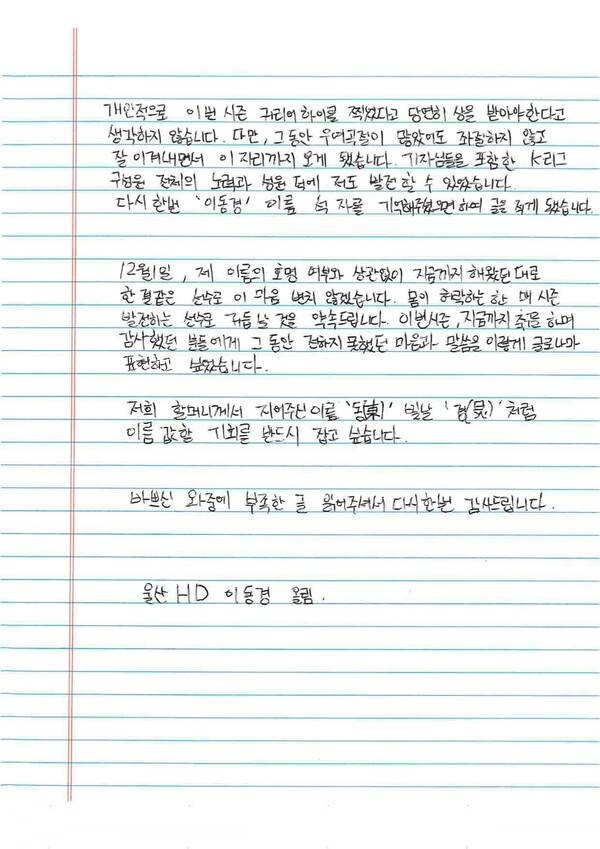 개인적으로 이번 시즌 커리어하이를 찍었다고 당연히 상을 받아야한다고
생각하지 않습니다. 다만, 그동안 우여곡절이 많았어도 좌절하지 않고
잘 이겨내면서 이 자리까지 오게 됐습니다. 기자님들을 포함한 K리그
구성원 전체의 노력과 성원 덕에 저도 발전 할 수 있었습니다.
다시 한번 '이동경' 이름 석 자를 기억해주셨으면 하여 글을 적게 됐습니다.
12월1일, 제 이름의 호명 여부와 상관없이 지금까지 해왔던 대로
한결같은 선수로 이 마음 변치 않겠습니다. 몸이 허락하는 한 매 시즌
발전하는 선수로 거듭 날 것을 약속드립니다. 이번시즌, 지금까지 축구를 하며
감사했던 분들에게 그 동안 전하지 못했던 마음과 말씀을 이렇게 글로나마
표현하고 싶었습니다.
저희 할머니께서 지어주신 이름 '동(東)' 빛날 '경(炅)' 처럼
이름 값할 기회를 반드시 잡고 싶습니다.
바쁘신 와중에 부족한 글 읽어주셔서 다시한번 감사드립니다.
울산 HD 이동경 올림.